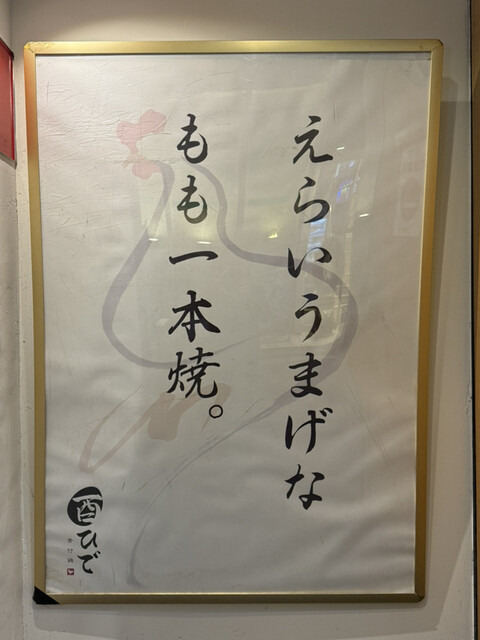 えらいうまげな
もも一本焼。
酉ひで